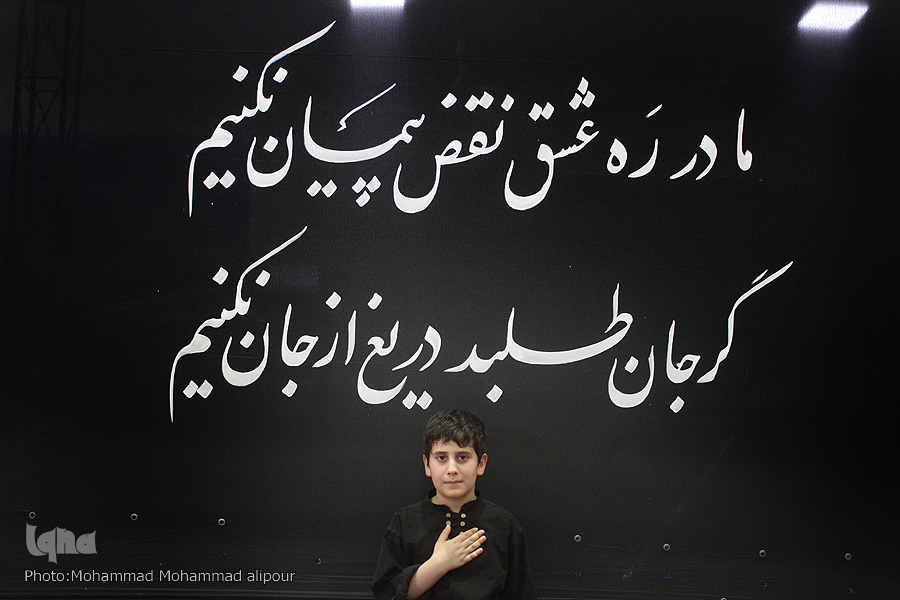 ما در رَه عشق نقض پیمان نکنیم
گر جان طلبد دریغ از جان نکنیم
Iqna
Photo:Mohammad Mohammad alipour